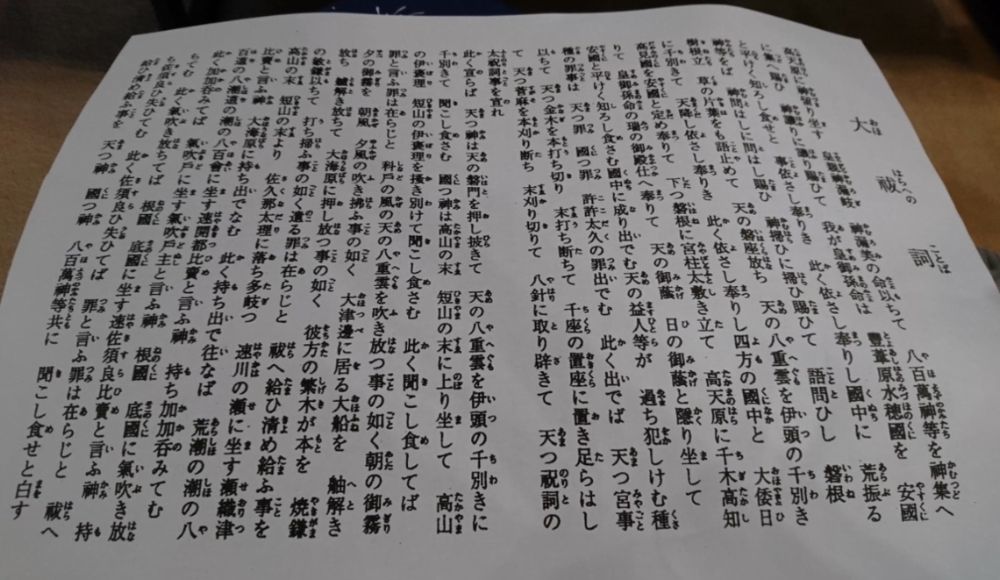 大祓詞
高天原に神留り坐す 皇親神漏岐 神漏美の命以ちて 八百萬神等を神集へ
に集へ賜ひ 神議りに議り賜ひて 我が皇御孫命は 豐葦原水穂國を 安國
と平けく知ろし食せと 事依さし奉りき 此く依さし奉りし國中に 荒振る
神等をば 神問はしに問はし賜ひ 神掃ひに掃ひ賜ひて 語問ひし 磐根
樹根立 草の片葉をも語止めて 天の磐座放ち 天の八重雲を伊頭の千別き
に千別きて 天降し依さし奉りき 此く依さし奉りし四方の國中と 大倭日
高見國を安國と定め奉りて 下つ磐根に宮柱太敷き立て 高天原に千木高知
りて 皇御孫命の瑞の御殿仕へ奉りて 天の御蔭 日の御蔭と隱り坐して
安國と平けく知ろし食さむ國中に成り出でむ天の益人等が 過ち犯しけむ種
種の罪事は 天つ罪 國つ罪 許許太久の罪出でむ 此く出でば 天つ宮事
以ちて 天つ金木を本打ち切り 末打ち断ちて 千座の置座に置き足らはし
て 天つ菅麻を本刈り断ち 末刈り切りて 八針に取り辟きて 天つ祝詞の
太祝詞事を宣れ
此く宣らば 天つ神は天の磐門を押し披きて 天の八重雲を伊頭の千別きに
千別きて 聞こし食さむ 國つ神は高山の末 短山の末に上り坐して 高山
の伊褒理 短山の伊褒理を掻き別けて聞こし食さむ 此く聞こし食してば
罪と言ふ罪は在らじと 科戸の風の天の八重雲を吹き放つ事の如く 朝の御霧
夕の御霧を 朝風 夕風の吹き拂ふ事の如く 大津邊に居る大船を 舳解き
放ち 艫解き放ちて 大海原に押し放つ事の如く 彼方の繁木が本を 焼鎌
の敏鎌以ちて 打ち掃ふ事の如く 遺る罪は在らじと 祓へ給ひ清め給ふ事を
高山の末 短山の末より 佐久那太理に落ち多岐つ 速川の瀬に坐す瀬織津
比賣と言ふ神 大海原に持ち出でなむ 此く持ち出で往なば 荒潮の潮の八
百道の八潮道の潮の八百會に坐す速開都比賣と言ふ神 持ち加加呑みてむ
此く加加呑みてば 氣吹戸に坐す氣吹戸主と言ふ神 根國 底國に氣吹き放
ちてむ 此く氣吹き放ちてば 根國 底國に坐す速佐須良比賣と言ふ神 持
ち佐須良ひ失ひてむ 此く佐須良ひ失ひてば 罪と言ふ罪は在らじと 祓へ
給ひ清め給ふ事を 天つ神 國つ神 八百萬神等共に 聞こし食せと白す